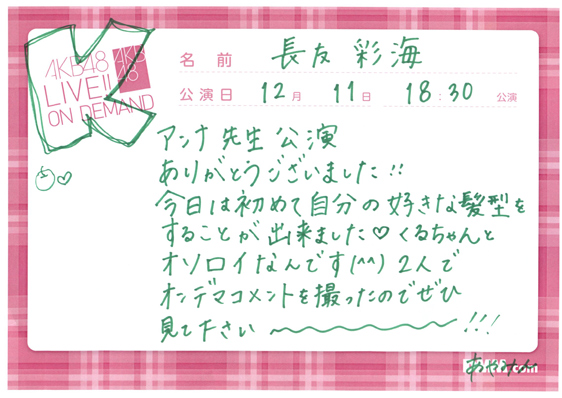 AKB48
LIVE!!
ON DEMAND
AKB
48
名前 長友 彩海
公演日 12月 11日 18:30 公演
アンナ先生公演
ありがとうございました!!
今日は初めて自分の好きな髪型を
することが出来ました♡くるちゃんと
オソロイなんです(^^) 2人で
オンデマコメントを撮ったのでぜひ
見て下さい〜〜〜!!!